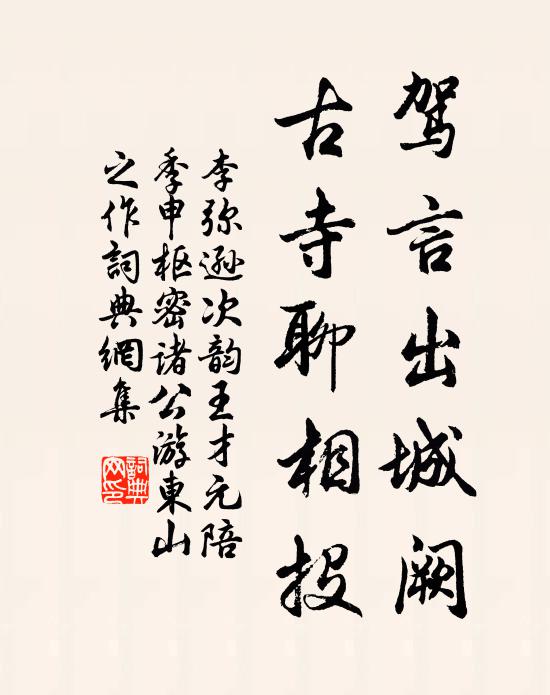 驾言出城阙
古寺聊相投
李弥逊次韵王才元陪
季申枢密诸公游東山
之作詞典網集
詞典
网印